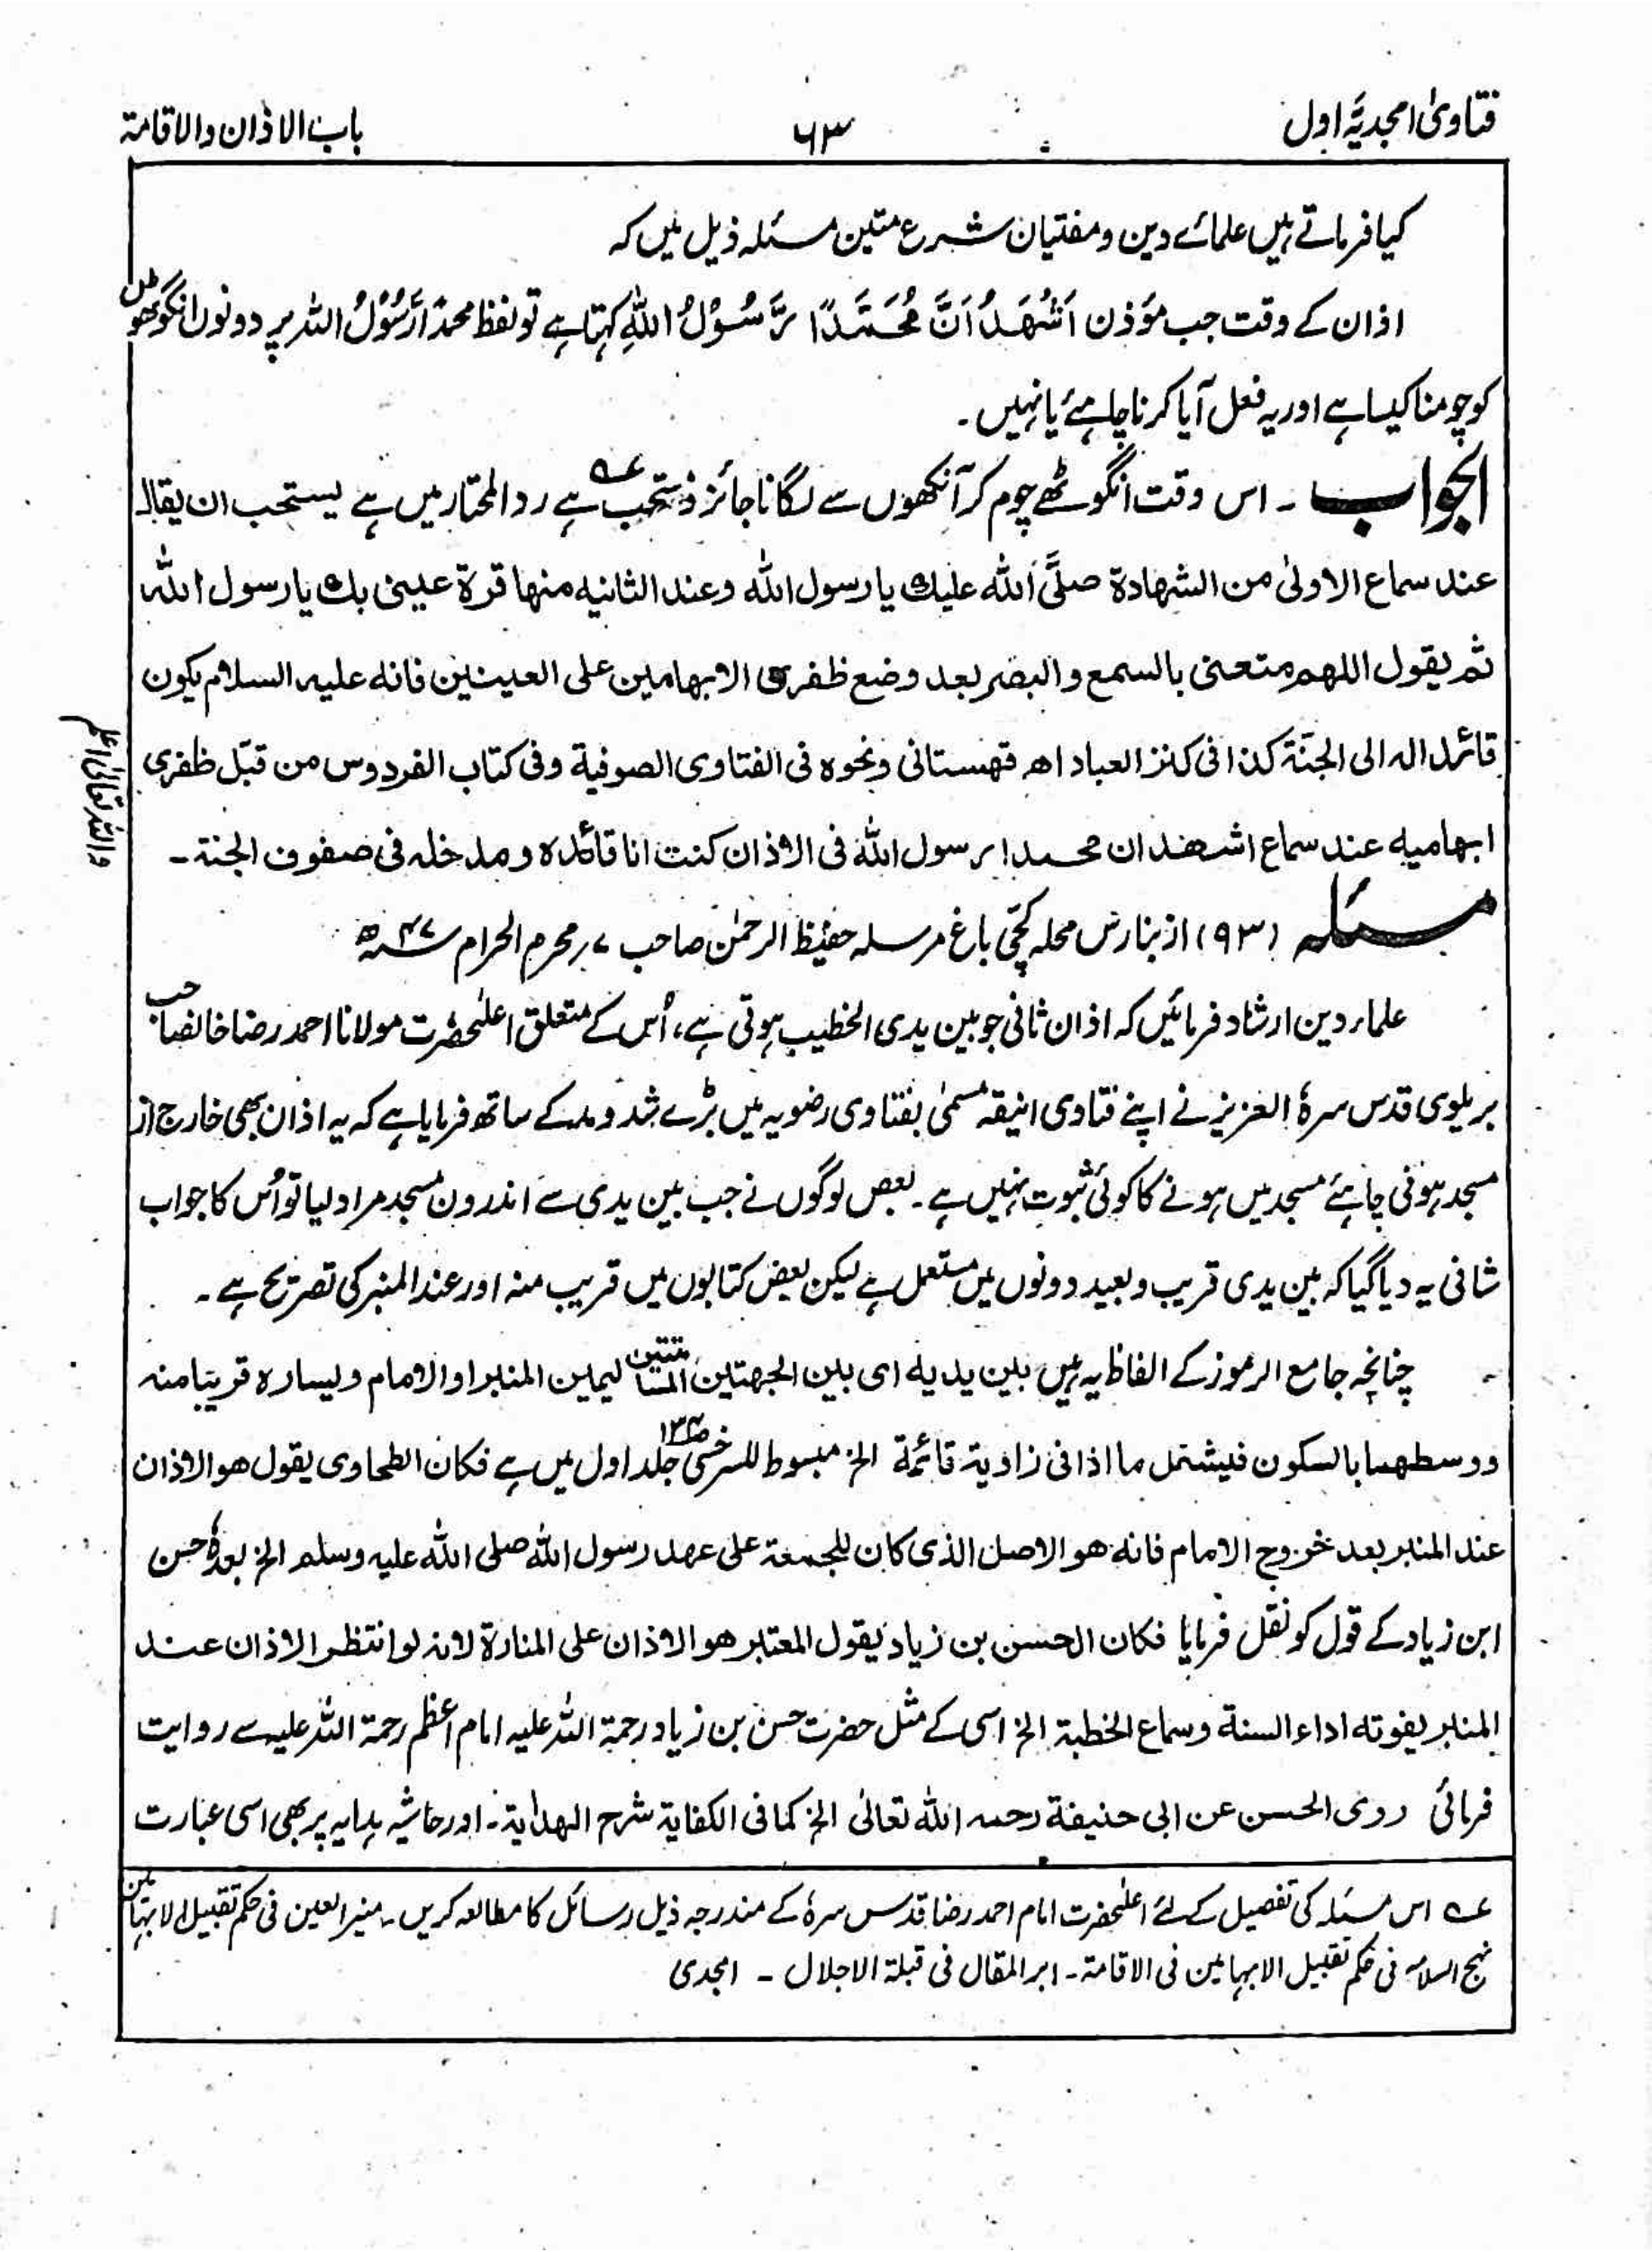 فتاویٰ امجدیہ اول ۶۳ باب الاذان والاقامۃ
کیا فرماتے ہیں علمائے دین و مفتیان شرع متین مسئلہ ذیل میں کہ
اذان کے وقت جب مؤذن اَشْهَدُ اَنَّ مُحَمَّدًا رَّسُوْلُ اللهِ کہتا ہے تو لفظ محمدًا رَّسُوْلُ اللہ پر دونوں انگوٹھوں
کو چومنا کیسا ہے اور یہ فعل آیا کرنا چاہئے یا نہیں ۔
الجواب ۔ اس وقت انگوٹھے چوم کر آنکھوں سے لگانا جائز و مستحب عہ ہے رد المحتار میں ہے یستحب ان یقال
عند سماع الاولیٰ من الشهادة صلَّی الله علیك یا رسول الله وعند الثانیه منها قرة عینی بك یا رسول الله
ثم یقول اللهم متعنی بالسمع والبصر بعد وضع ظفری الابهامین علی العینین فانه علیه السلام یکون
قائدا له الی الجنّة کذا فی کنز العباد اھ قهستانی ونحوه فی الفتاوی الصوفیة وفی کتاب الفردوس من قبّل ظفری
ابهامیه عند سماع اشهد ان محمدا رسول الله فی الاذان کنت انا قائده ومدخله فی صفوف الجنة ۔
واللہ تعالیٰ اعلم
مسئلہ (۹۳) از بنارس محلہ کچی باغ مرسلہ حفیظ الرحمٰن صاحب ۷؍ محرم الحرام ۴۷ھ
علماء دین ارشاد فرمائیں کہ اذان ثانی جو بین یدی الخطیب ہوتی ہے، اُس کے متعلق اعلیٰحضرت مولانا احمد رضا خانصاحب
بریلوی قدس سرہٗ العزیز نے اپنے فتاوی انیقہ مسمیٰ بفتاوی رضویہ میں بڑے شد و مد کے ساتھ فرمایا ہے کہ یہ اذان بھی خارج از
مسجد ہونی چاہئے مسجد میں ہونے کا کوئی ثبوت نہیں ہے ۔ بعض لوگوں نے جب بین یدی سے اندرون مسجد مراد لیا تو اُس کا جواب
شافی یہ دیا گیا کہ بین یدی قریب و بعید دونوں میں مستعمل ہے لیکن بعض کتابوں میں قریب منہ اور عند المنبر کی تصریح ہے ۔
چنانچہ جامع الرموز کے الفاظ یہ ہیں بین یدیه ای بین الجهتین المسامتتین لیمین المنبر او الامام ویساره قریبا منه
ووسطهما بالسکون فیشتمل ما اذا فی زاویة قائمة الخ مبسوط للسرخسی ص۱۳۴ جلد اول میں ہے فکان الطحاوی یقول هو الاذان
عند المنبر بعد خروج الامام فانه هو الاصل الذی کان للجمعة علی عهد رسول الله صلی الله علیه وسلم الخ بعدہٗ حسن
ابن زیاد کے قول کو نقل فرمایا فکان الحسن بن زیاد یقول المعتبر هو الاذان علی المنارة لانه لو انتظر الاذان عند
المنبر یفوته اداء السنة وسماع الخطبة الخ اسی کے مثل حضرت حسن بن زیاد رحمۃ اللہ علیہ امام اعظم رحمۃ اللہ علیہ سے روایت
فرمائی روی الحسن عن ابی حنیفة رحمه الله تعالیٰ الخ کما فی الکفایة شرح الهدایة ۔ اور حاشیہ ہدایہ پر بھی اسی عبارت
عہ اس مسئلہ کی تفصیل کے لئے اعلیٰحضرت امام احمد رضا قدس سرہٗ کے مندرجہ ذیل رسائل کا مطالعہ کریں ۔ منیر العین فی حکم تقبیل الابہامین
نہج السلامہ فی حکم تقبیل الابہامین فی الاقامۃ ۔ ابر المقال فی قبلۃ الاجلال ۔ امجدی